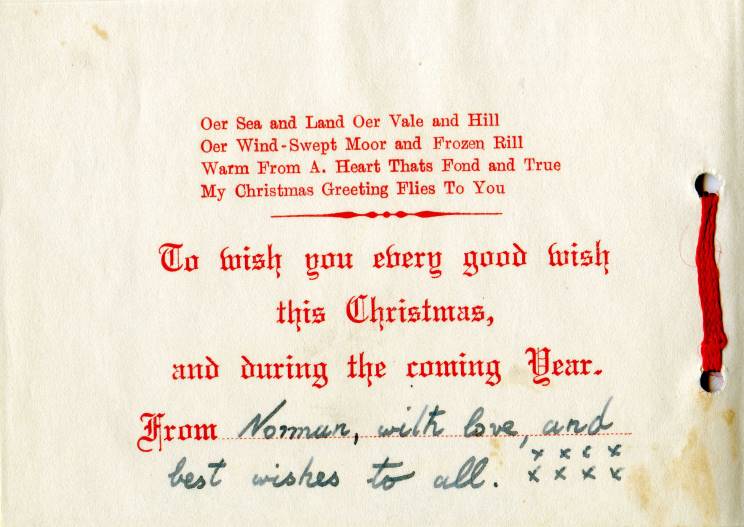 Oer Sea and Land Oer Vale and Hill
Oer Wind-Swept Moor and Frozen Rill
Warm From A. Heart Thats Fond and True
My Christmas Greeting Flies To You
To wish you every good wish
this Christmas,
and during the coming Year.
From Norman, with love, and
x x x x
best wishes to all. x x x x